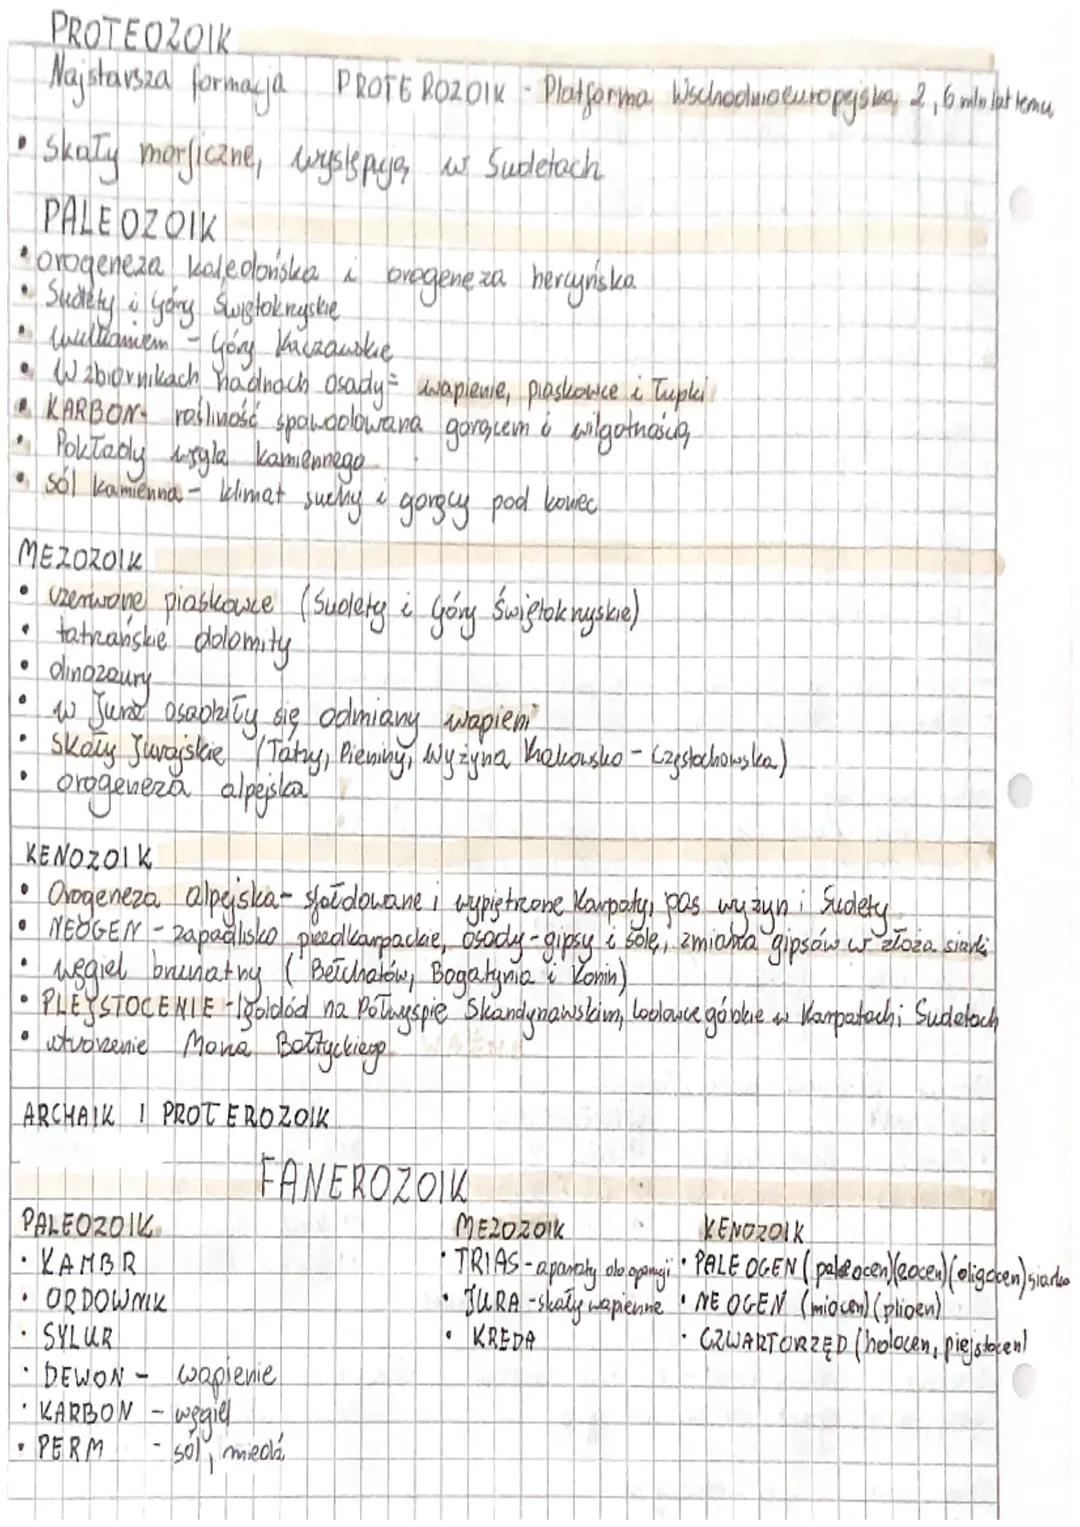 PROTEOZOIK
Najstarsza formacja PROTEROZOIK - Platforma Wschodnioeuropejska, 2,6 mln lat temu
• Skały morficzne, występują w Sudetach
PALEOZOIK
• orogeneza kaledońska i orogeneza hercyńska
• Sudety i Góry Świętokryskie
• wulkanizm - Góry Kaczawskie
• W zbiornikach nadnach osady = wapienie, piaskowce i łupki
• KARBON - rośliność spowodowana gorącem i wilgotnością
• Pokłady węgla kamiennego
• sól kamienna - klimat suchy i gorący pod koniec
MEZOZOIK
• czerwone piaskowce (Sudety i Góry Świętokryskie)
• tatrzańskie dolomity
• dinozaury
• w Jurze osadziły się odmiany wapieni
• Skały Jurajskie (Tatry, Pieniny, Wyżyna Krakowsko - Częstochowska)
• orogeneza alpejska
KENOZOIK
• Orogeneza alpejska - sfałdowane i wypiętrzone Karpaty, pas wyżyn i Sudety
• NEOGEN - zapadlisko przedkarpackie, osady - gipsy i sole, zmiana gipsów w złoża siarki
• węgiel brunatny (Bełchatów, Bogatynia i Konin)
• PLEJSTOCENIE - lądolód na Półwyspie Skandynawskim, lodowce górskie w Karpatach i Sudetach
• utworzenie Morza Bałtyckiego
ARCHAIK I PROTEROZOIK
FANEROZOIK
PALEOZOIK MEZOZOIK KENOZOIK
• KAMBR • TRIAS - aparaty do operacji • PALEOGEN (paleocen)(eocen)(oligocen) siarka
• ORDOWIK • JURA - skały wapienne • NEOGEN (miocen)(plioen)
• SYLUR • KREDA • CZWARTORZĘD (holocen, plejstocen)
• DEWON - wapienie
• KARBON - węgiel
• PERM - sól, miedź